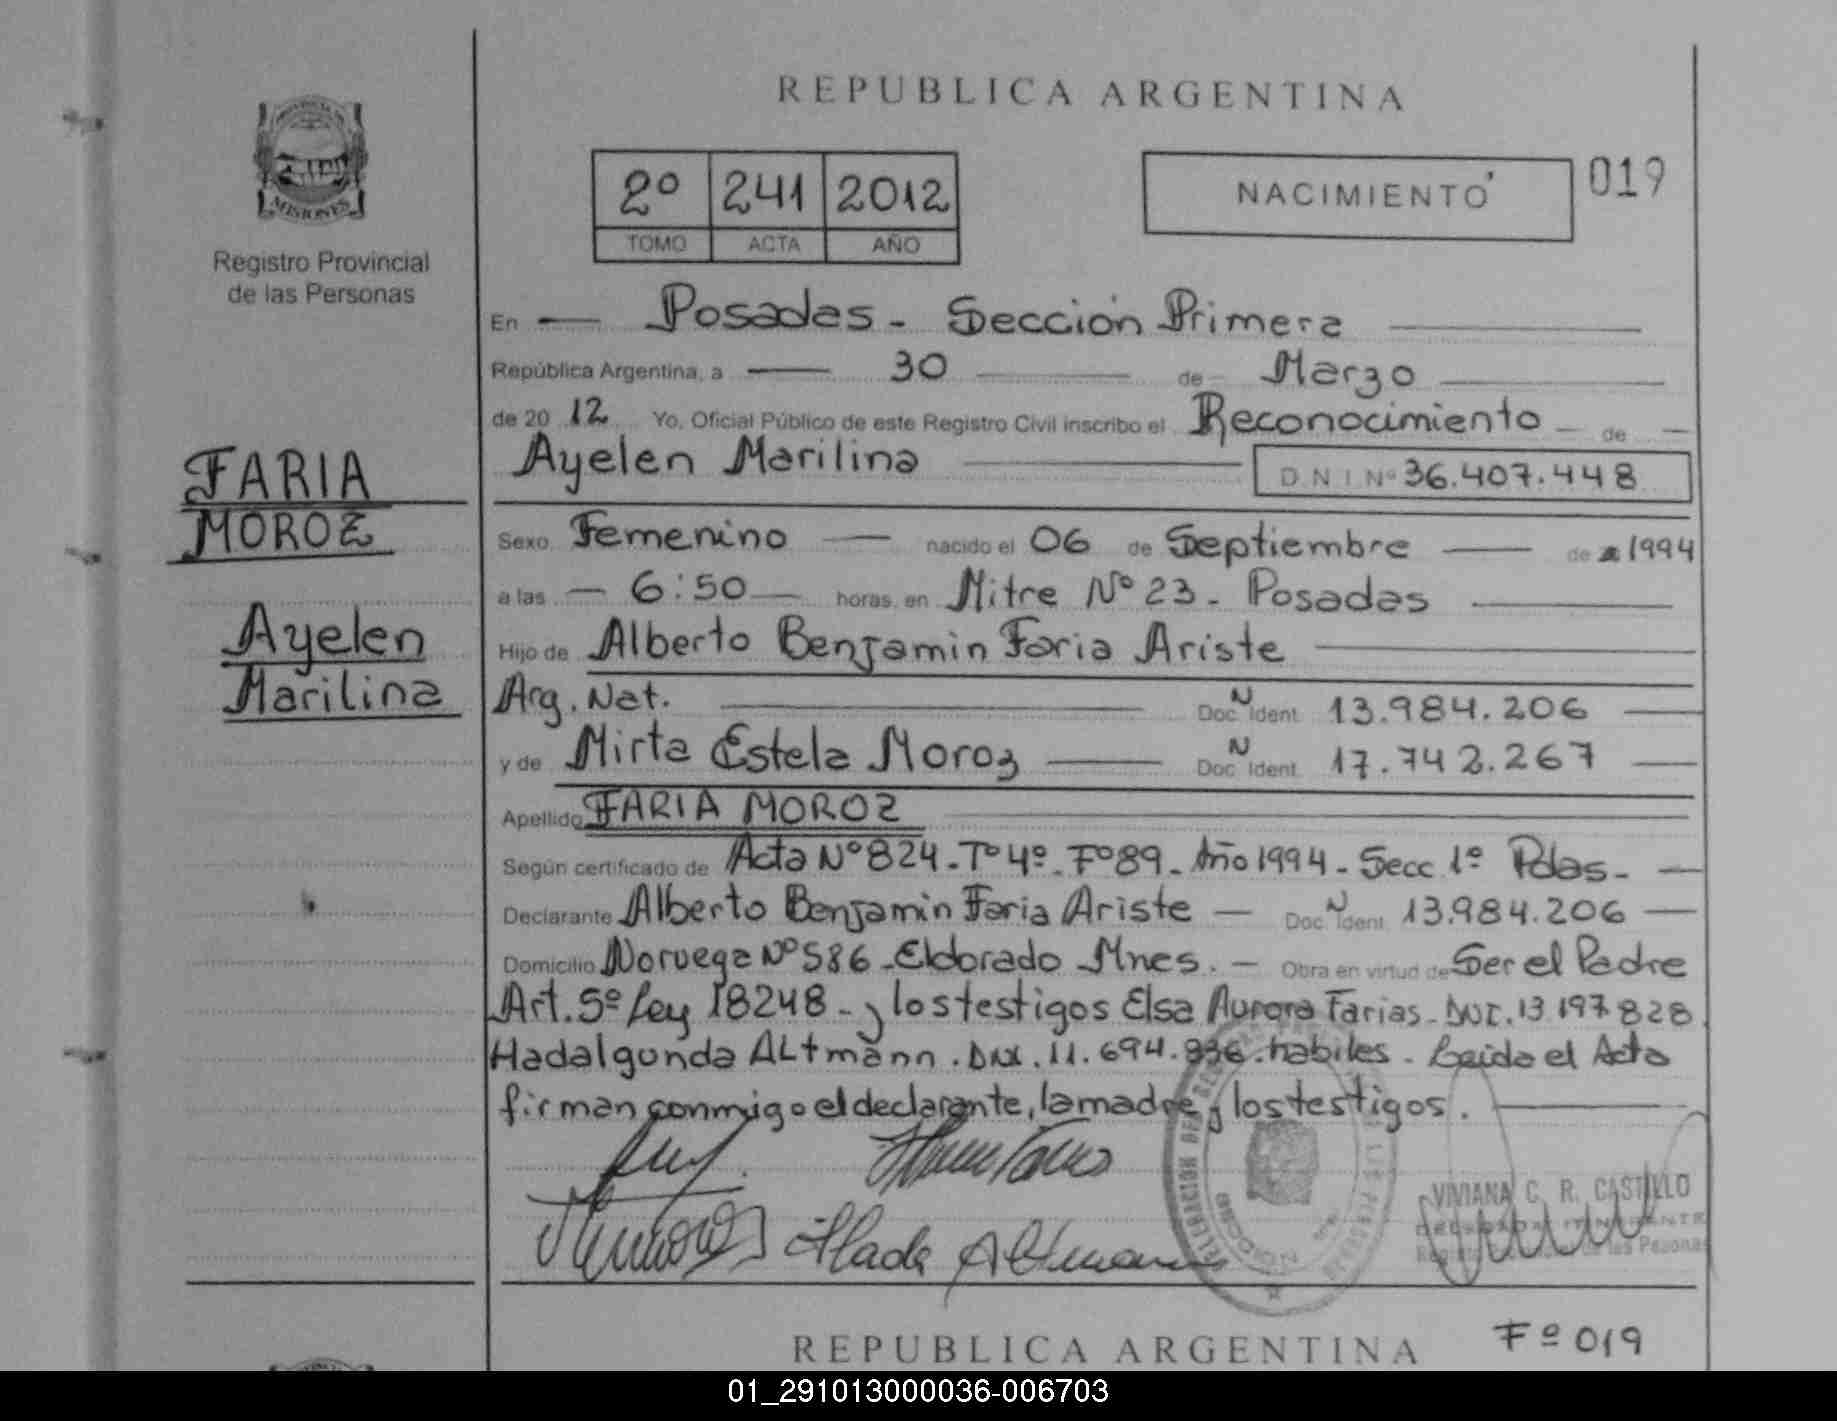 REPUBLICA ARGENTINA
2º 241 2012
TOMO ACTA AÑO
NACIMIENTO
019
MISIONES
Registro Provincial
de las Personas
FARIA
MOROZ
Ayelen
Marilina
En Posadas - Sección Primera
República Argentina, a 30 de Marzo
de 20 12 Yo, Oficial Público de este Registro Civil inscribo el Reconocimiento de
Ayelen Marilina D N I Nº 36.407.448
Sexo Femenino nacido el 06 de Septiembre de 1994
a las 6:50 horas, en Mitre Nº 23 - Posadas
Hijo de Alberto Benjamin Faria Ariste
Arg. Nat. Doc. Ident. N 13.984.206
y de Mirta Estela Moroz Doc. Ident. N 17.742.267
Apellido FARIA MOROZ
Según certificado de Acta Nº 824 - Tº 4º - Fº 89 - Año 1994 - Secc 1º Pdas -
Declarante Alberto Benjamin Faria Ariste Doc. Ident. N 13.984.206
Domicilio Noruega Nº 586 - Eldorado Mnes. - Obra en virtud de Ser el Padre
Art. 5º Ley 18248 - y los testigos Elsa Aurora Farias - DNI. 13 197 828
Hadalgunda Altmann . DNI . 11.694.836 . habiles . Leida el Acta
firman conmigo el declarante, la madre y los testigos.
Hada Altmann
VIVIANA C. R. CASTILLO
REPUBLICA ARGENTINA
Fº 019
01_291013000036-006703